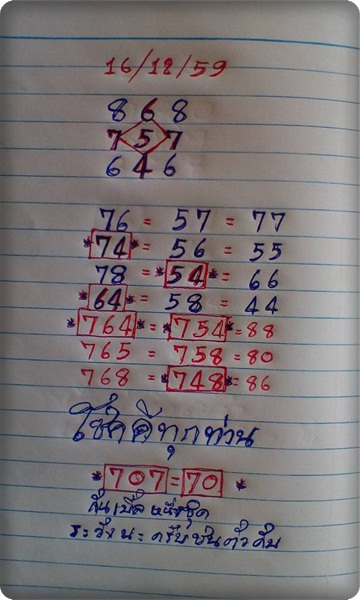 16/12/59
8 6 8
7 5 7
6 4 6
76 = 57 = 77
*74* = 56 = 55
78 = *54* = 66
*64* = 58 = 44
*764* = *754* = 88
765 = 758 = 80
768 = *748* = 86
โชคดีทุกท่าน
*707 = 70*
ระวังนะครับ